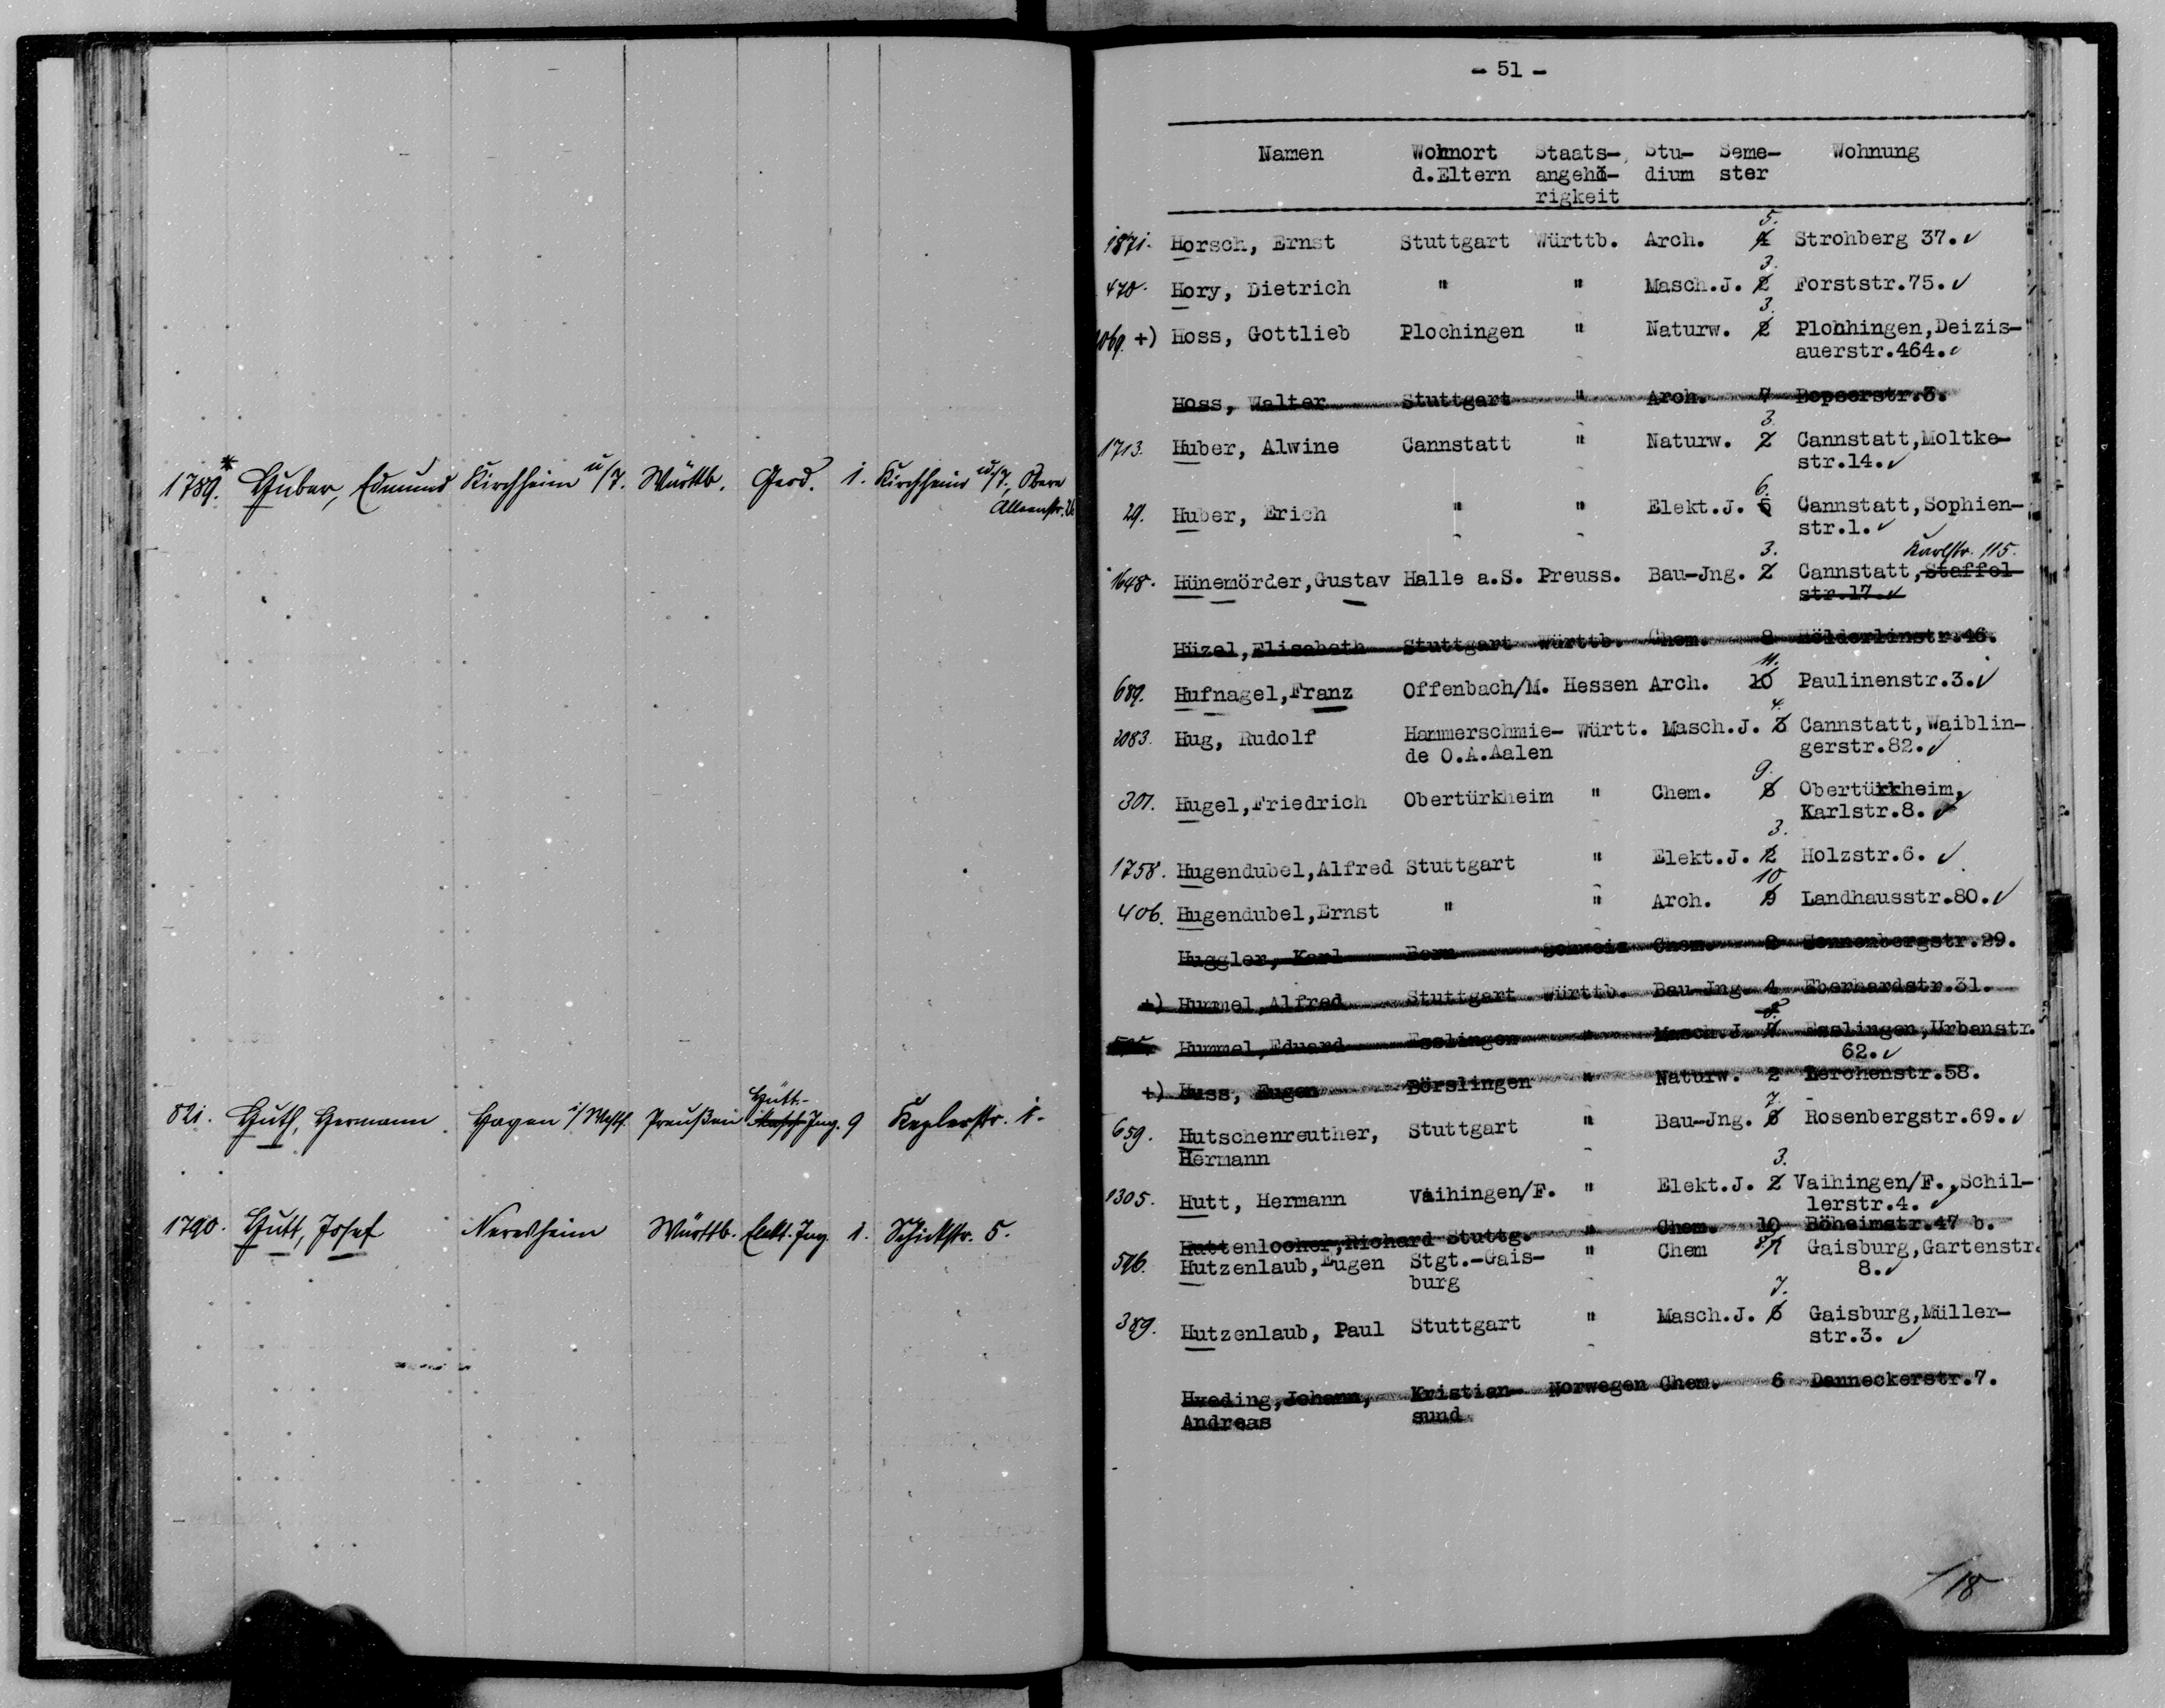 1789.* Huber, Edmund Kirchheim u/T. Württb. Geod. 1. Kirchheim u/T., Obere
Alleenstr.
Hütt.-
821. Huth, Hermann Hagen i/Westf. Preußen Masch. Ing. 9 Keplerstr. 1.
1790. Hutt, Josef Neresheim Württb. Elekt. Ing. 1. Schickstr. 5.
- 51 -
Namen Wohnort Staats- Stu- Seme- Wohnung
d.Eltern angehö- dium ster
rigkeit
5.
1871. Horsch, Ernst Stuttgart Württb. Arch. 4 Strohberg 37. ✓
3.
470. Hory, Dietrich " " Masch.J. 2 Forststr.75. ✓
3.
1069. +) Hoss, Gottlieb Plochingen " Naturw. 2 Plochingen,Deizis-
auerstr.464. ✓
Hoss, Walter Stuttgart " Arch. 7 Bopserstr.3.
3.
1713. Huber, Alwine Cannstatt " Naturw. 2 Cannstatt,Moltke-
str.14. ✓
6.
29. Huber, Erich " " Elekt.J. 5 Cannstatt,Sophien-
str.1. ✓
3. Karlstr. 115.
1648. Hünemörder,Gustav Halle a.S. Preuss. Bau-Jng. 2 Cannstatt,Staffel
str.17. ✓
Hüzel,Elisabeth Stuttgart Württb. Chem. 8 Hölderlinstr.46.
11.
689. Hufnagel,Franz Offenbach/M. Hessen Arch. 10 Paulinenstr.3. ✓
4.
2083. Hug, Rudolf Hammerschmie- Württ. Masch.J. 3 Cannstatt,Waiblin-
de O.A.Aalen gerstr.82. ✓
9.
301. Hugel,Friedrich Obertürkheim " Chem. 8 Obertürkheim,
Karlstr.8. ✓
3.
1758. Hugendubel,Alfred Stuttgart " Elekt.J. 2 Holzstr.6. ✓
10
406. Hugendubel,Ernst " " Arch. 9 Landhausstr.80. ✓
Huggler, Karl Bern Schweiz Chem. 2 Sonnenbergstr.29.
+) Hummel,Alfred Stuttgart Württb. Bau-Jng. 4 Eberhardstr.31.
8.
Hummel,Eduard Esslingen " Masch.J. 7 Esslingen,Urbanstr.
62. ✓
+) Huss, Eugen Börslingen " Naturw. 2 Lerchenstr.58.
7.
659. Hutschenreuther, Stuttgart " Bau-Jng. 6 Rosenbergstr.69. ✓
Hermann
3.
1305. Hutt, Hermann Vaihingen/F. " Elekt.J. 2 Vaihingen/F.,Schil-
lerstr.4. ✓
Huttenlocher,Richard Stuttg. " Chem. 10 Böheimstr.47 b.
596. Hutzenlaub,Eugen Stgt.-Gais- " Chem 8 7 Gaisburg,Gartenstr.
burg 8. ✓
7.
389. Hutzenlaub, Paul Stuttgart " Masch.J. 6 Gaisburg,Müller-
str.3. ✓
Hveding,Johann, Kristian- Norwegen Chem. 6 Danneckerstr.7.
Andreas sund
/18